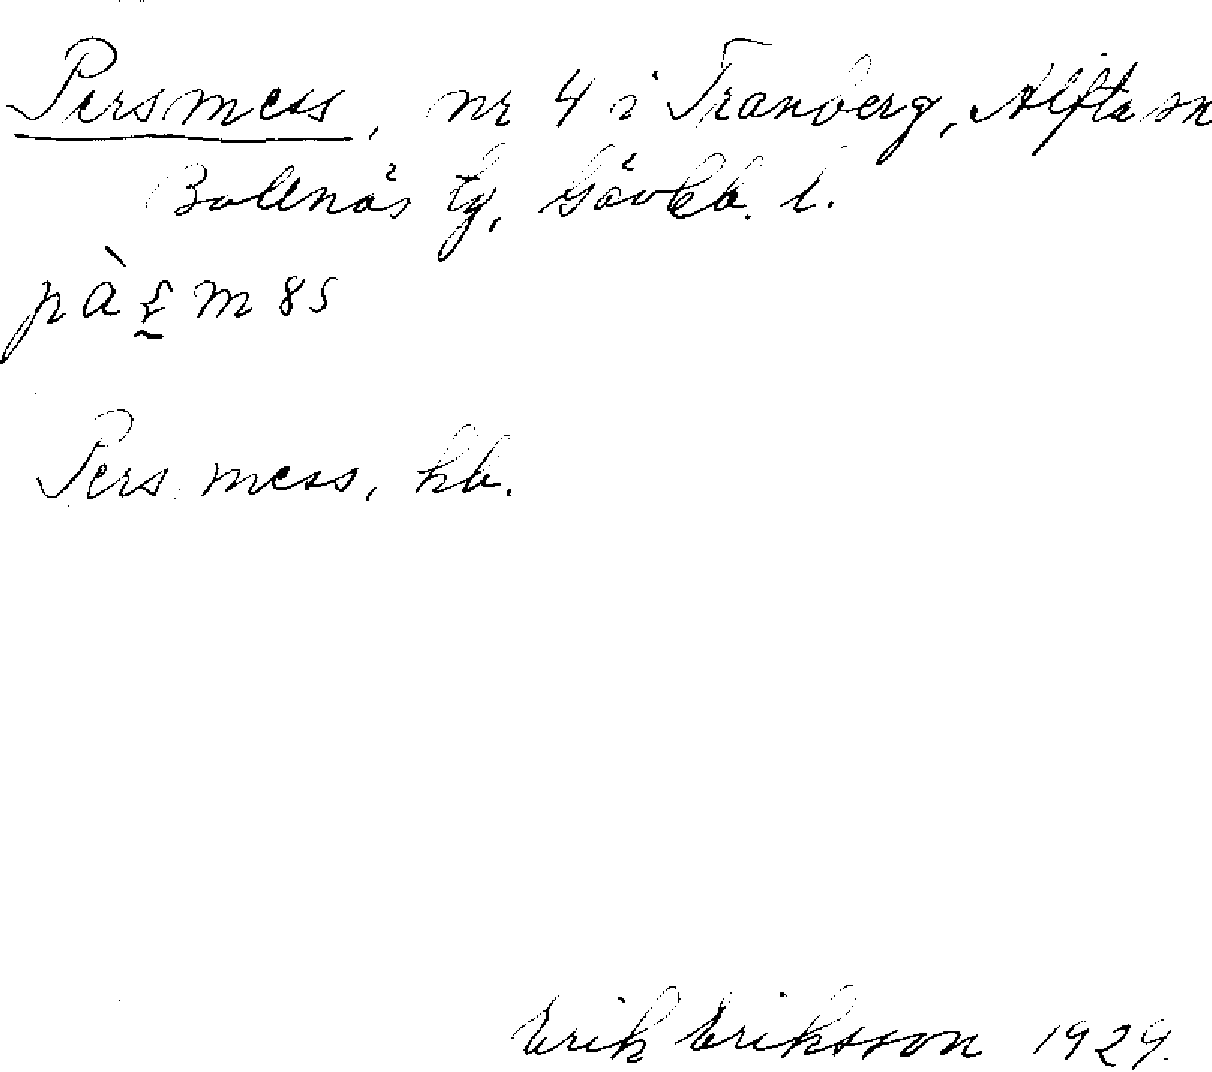 Persmess, nr 4 i Tranberg, Alfta sn
Bollnäs tg, Gävleb. l.
Pers mess, hb.
Erik Eriksson 1929.